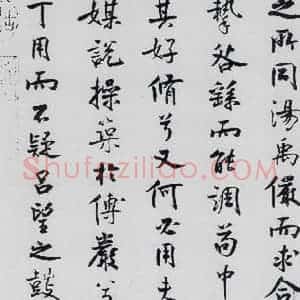 之所同湯禹儼而求合
摯咎繇而能調苟中
其好脩兮又何必用夫
媒說操築於傅巖兮
丁用而不疑呂望之鼓
Shufaziliao.com